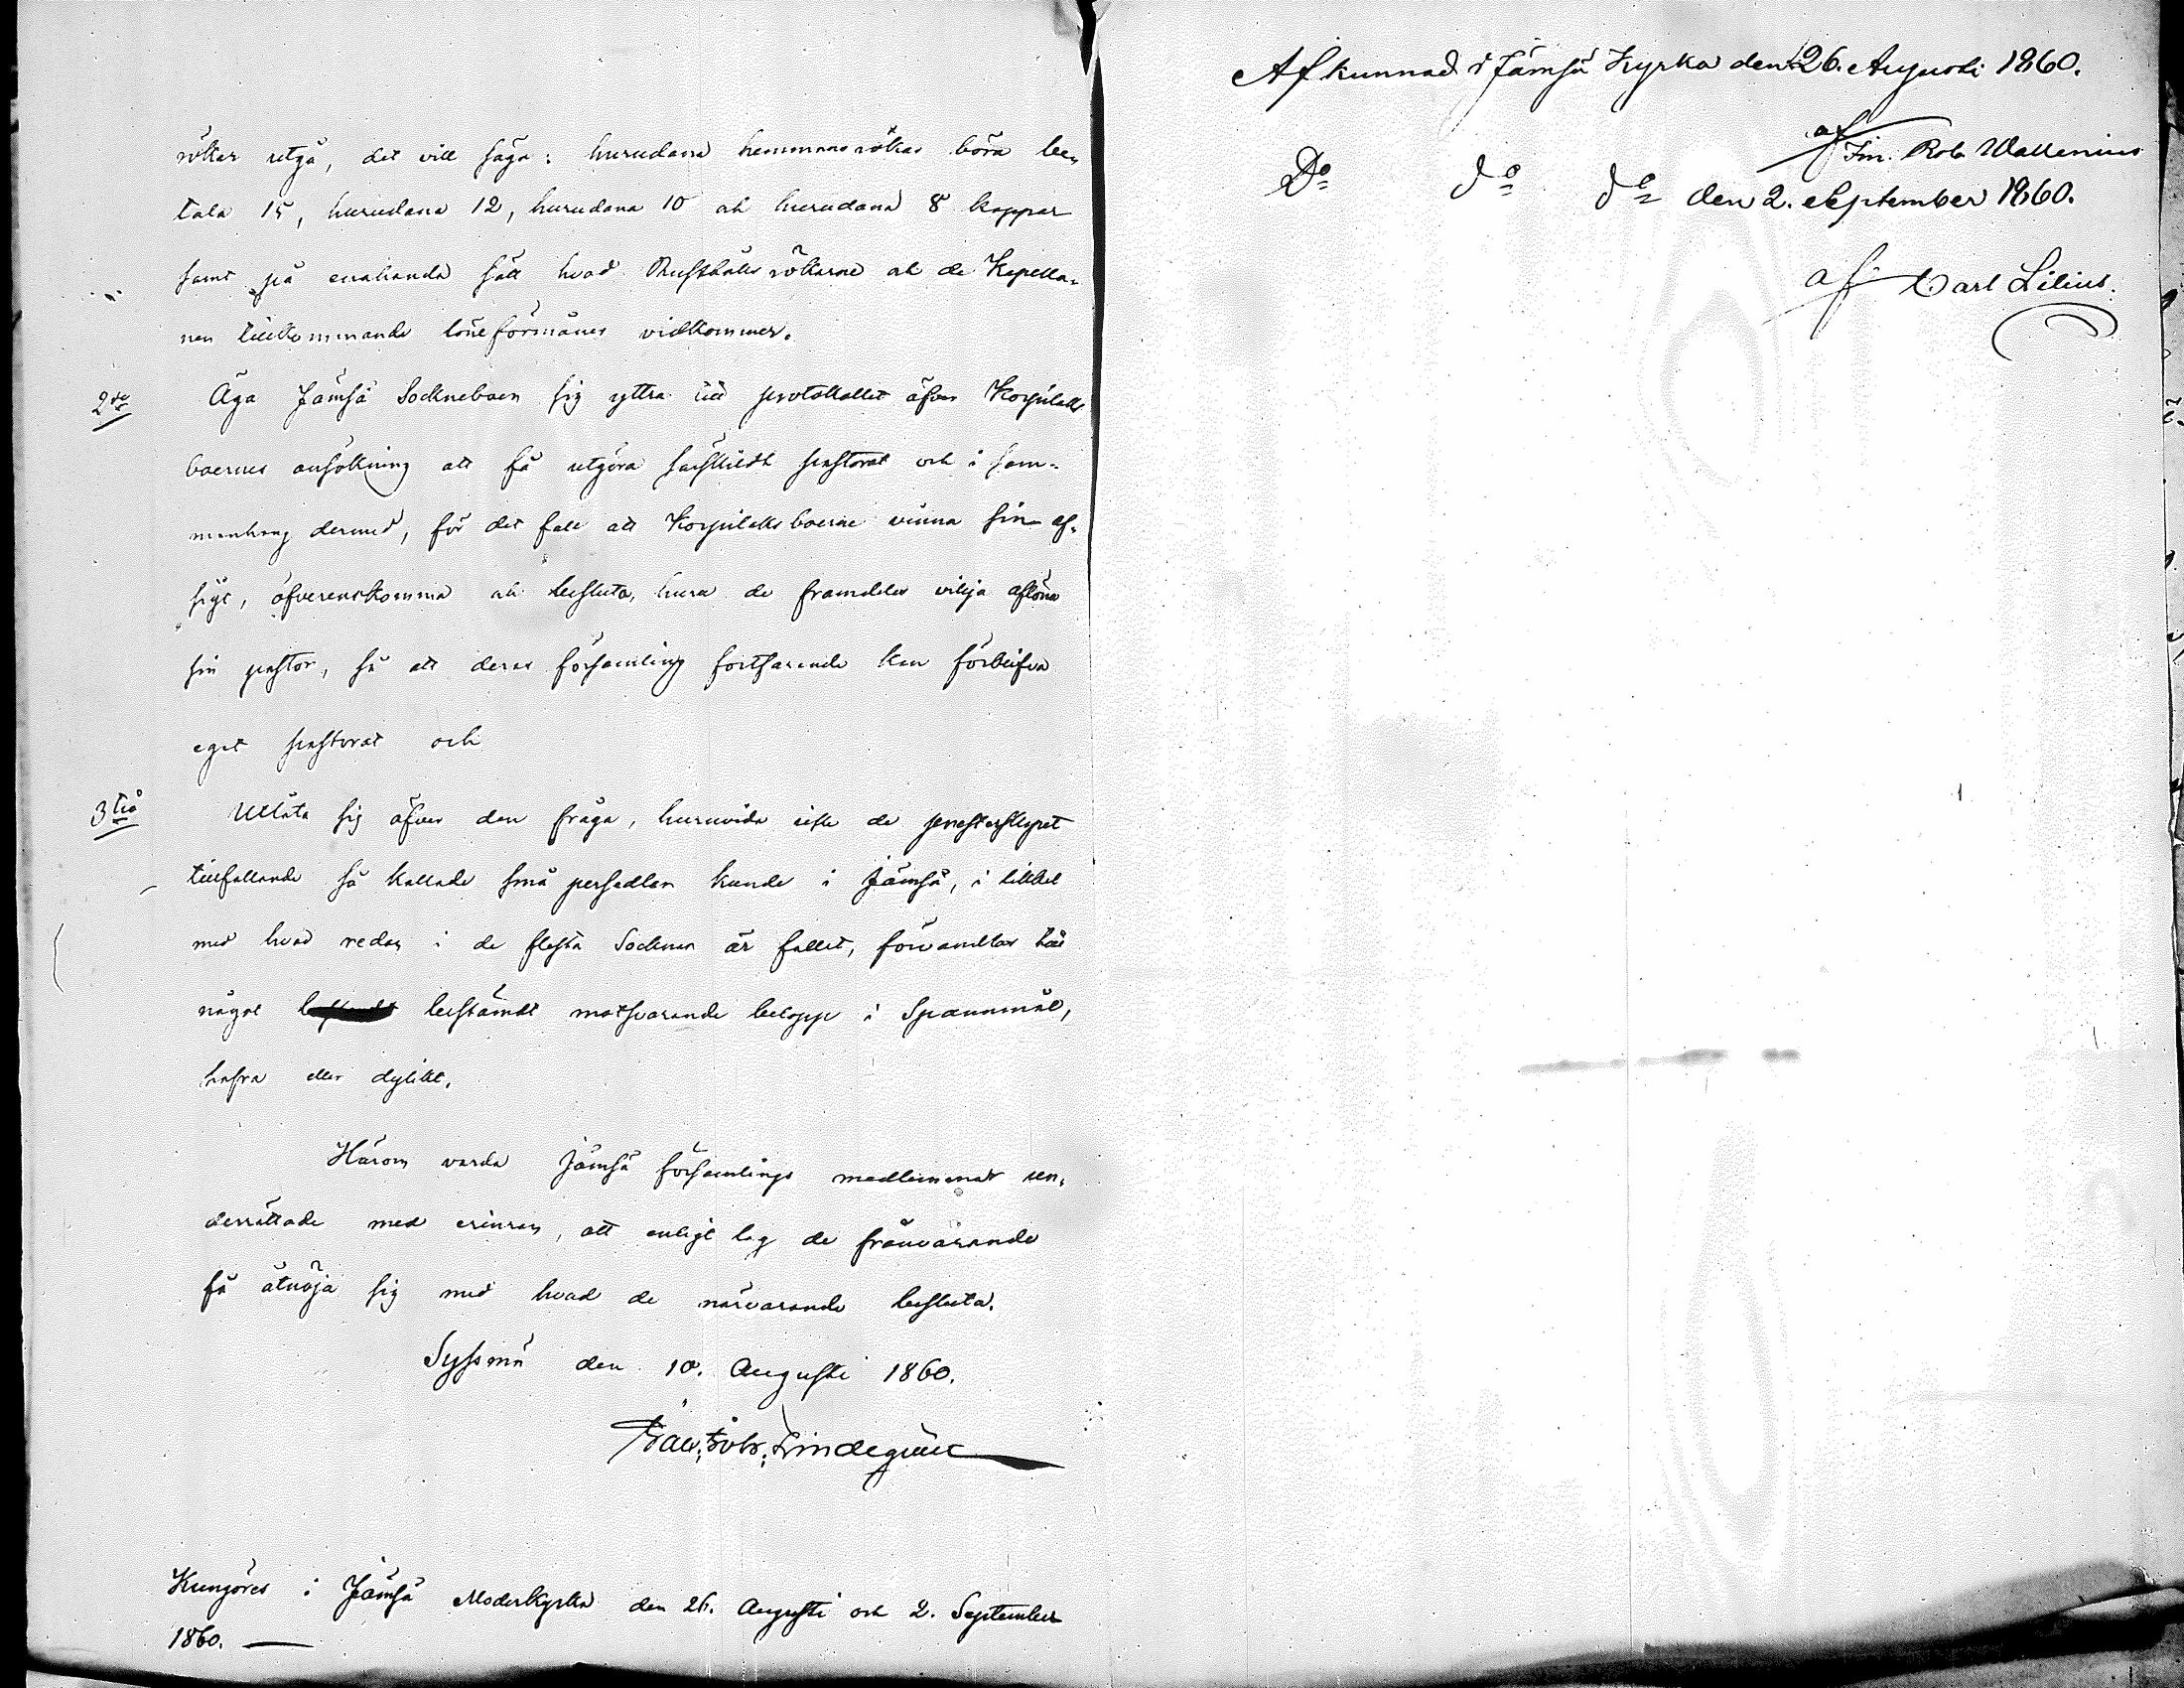 rökar utgå, det vill säga: hurudana hemmansrökar böra be-
tala 15, hurudana 12, hurudana 10 och hurudana 8 kappar
samt på enahanda sätt hvad Rusthålls rökarne och de Kapella-
nen tillkommande löneförmåner vidkommer.
2do Äga Jämsä Sockneboer sig yttra till protokollet öfver Korpilaks
boernes ansökning att få utgöra särskildt pastorat och i sam-
manhang dermed, för det fall att Korpilaksboerne vinna sin af-
sigt, öfverenskomma och besluta, huru de framdeles vilja aflöna
sin pastor, så att deras församling fortfarande kan förblifva
eget pastorat och
3tio Utlåta sig öfver den fråga, huruvida icke de presterskapet
tillfallande så kallade små persedlar kunde i Jämsä, i likhet
med hvad redan i de flesta Socknar är fallet, förvandlas till
något bestämdt motsvarande belopp i Spannmål,
hafra eller dylikt.
Härom varda Jämsä församlings medlemmar un-
derrättade med erinran, att enligt lag de frånvarande
få åtnöja sig med hvad de närvarande besluta.
Sysmä den 10. Augusti 1860.
Lindeqvist
Kungöres i Jämsä Moderkyrka den 26. Augusti och 2. September
1860.
Afkunnad i Jämsä Kyrka den 26. Augusti 1860.
af Im. Rob. Wallenius
Do do do den 2. September 1860.
af Carl Lilius.